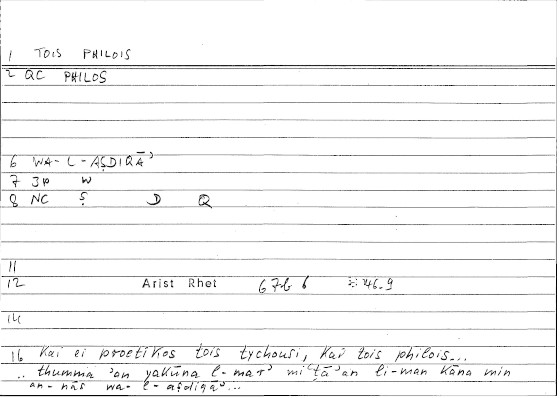 1 TOIS PHILOIS
2 QC PHILOS
6 WA-L-AṢDIQĀʾ
7 3P W
8 NC Ṣ D Q
11
12 Arist Rhet 67b6 46.9
14
16 Kai ei proetikos tois tychousi, Kai tois philois...
.. thumma ʾan yakūna l-marʾ miʿṭāʾan li-man kāna min
an-nās wa-l-aṣdiqāʾ...